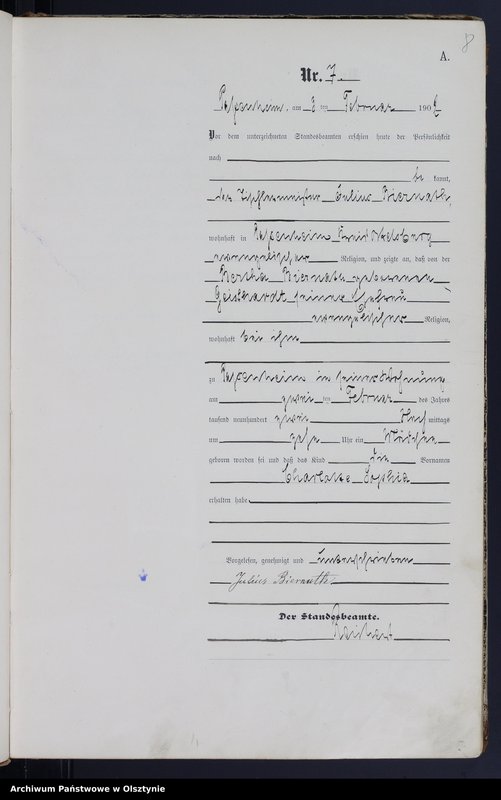 8
A.
Nr. 7.
Passenheim, am 3 ten Februar 190 2
Vor dem unterzeichneten Standesbeamten erschien heute der Persönlichkeit
nach
be kannt,
der Tischlermeister Julius Biernath,
wohnhaft in Passenheim Kreis Ortelsburg
evangelischer Religion, und zeigte an, daß von der
Bertha Biernath geborenen
seiner Ehefrau
evangelischer Religion,
wohnhaft bei ihm
zu Passenheim in seiner Wohnung
am zwei ten Februar des Jahres
tausend neunhundert zwei Nach mittags
um zehn Uhr ein Mädchen
geboren worden sei und daß das Kind die Vornamen
Charlotte Sophia
erhalten habe
Vorgelesen, genehmigt und unterschrieben
Julius Biernath
Der Standesbeamte.
Archiwum Państwowe w Olsztynie